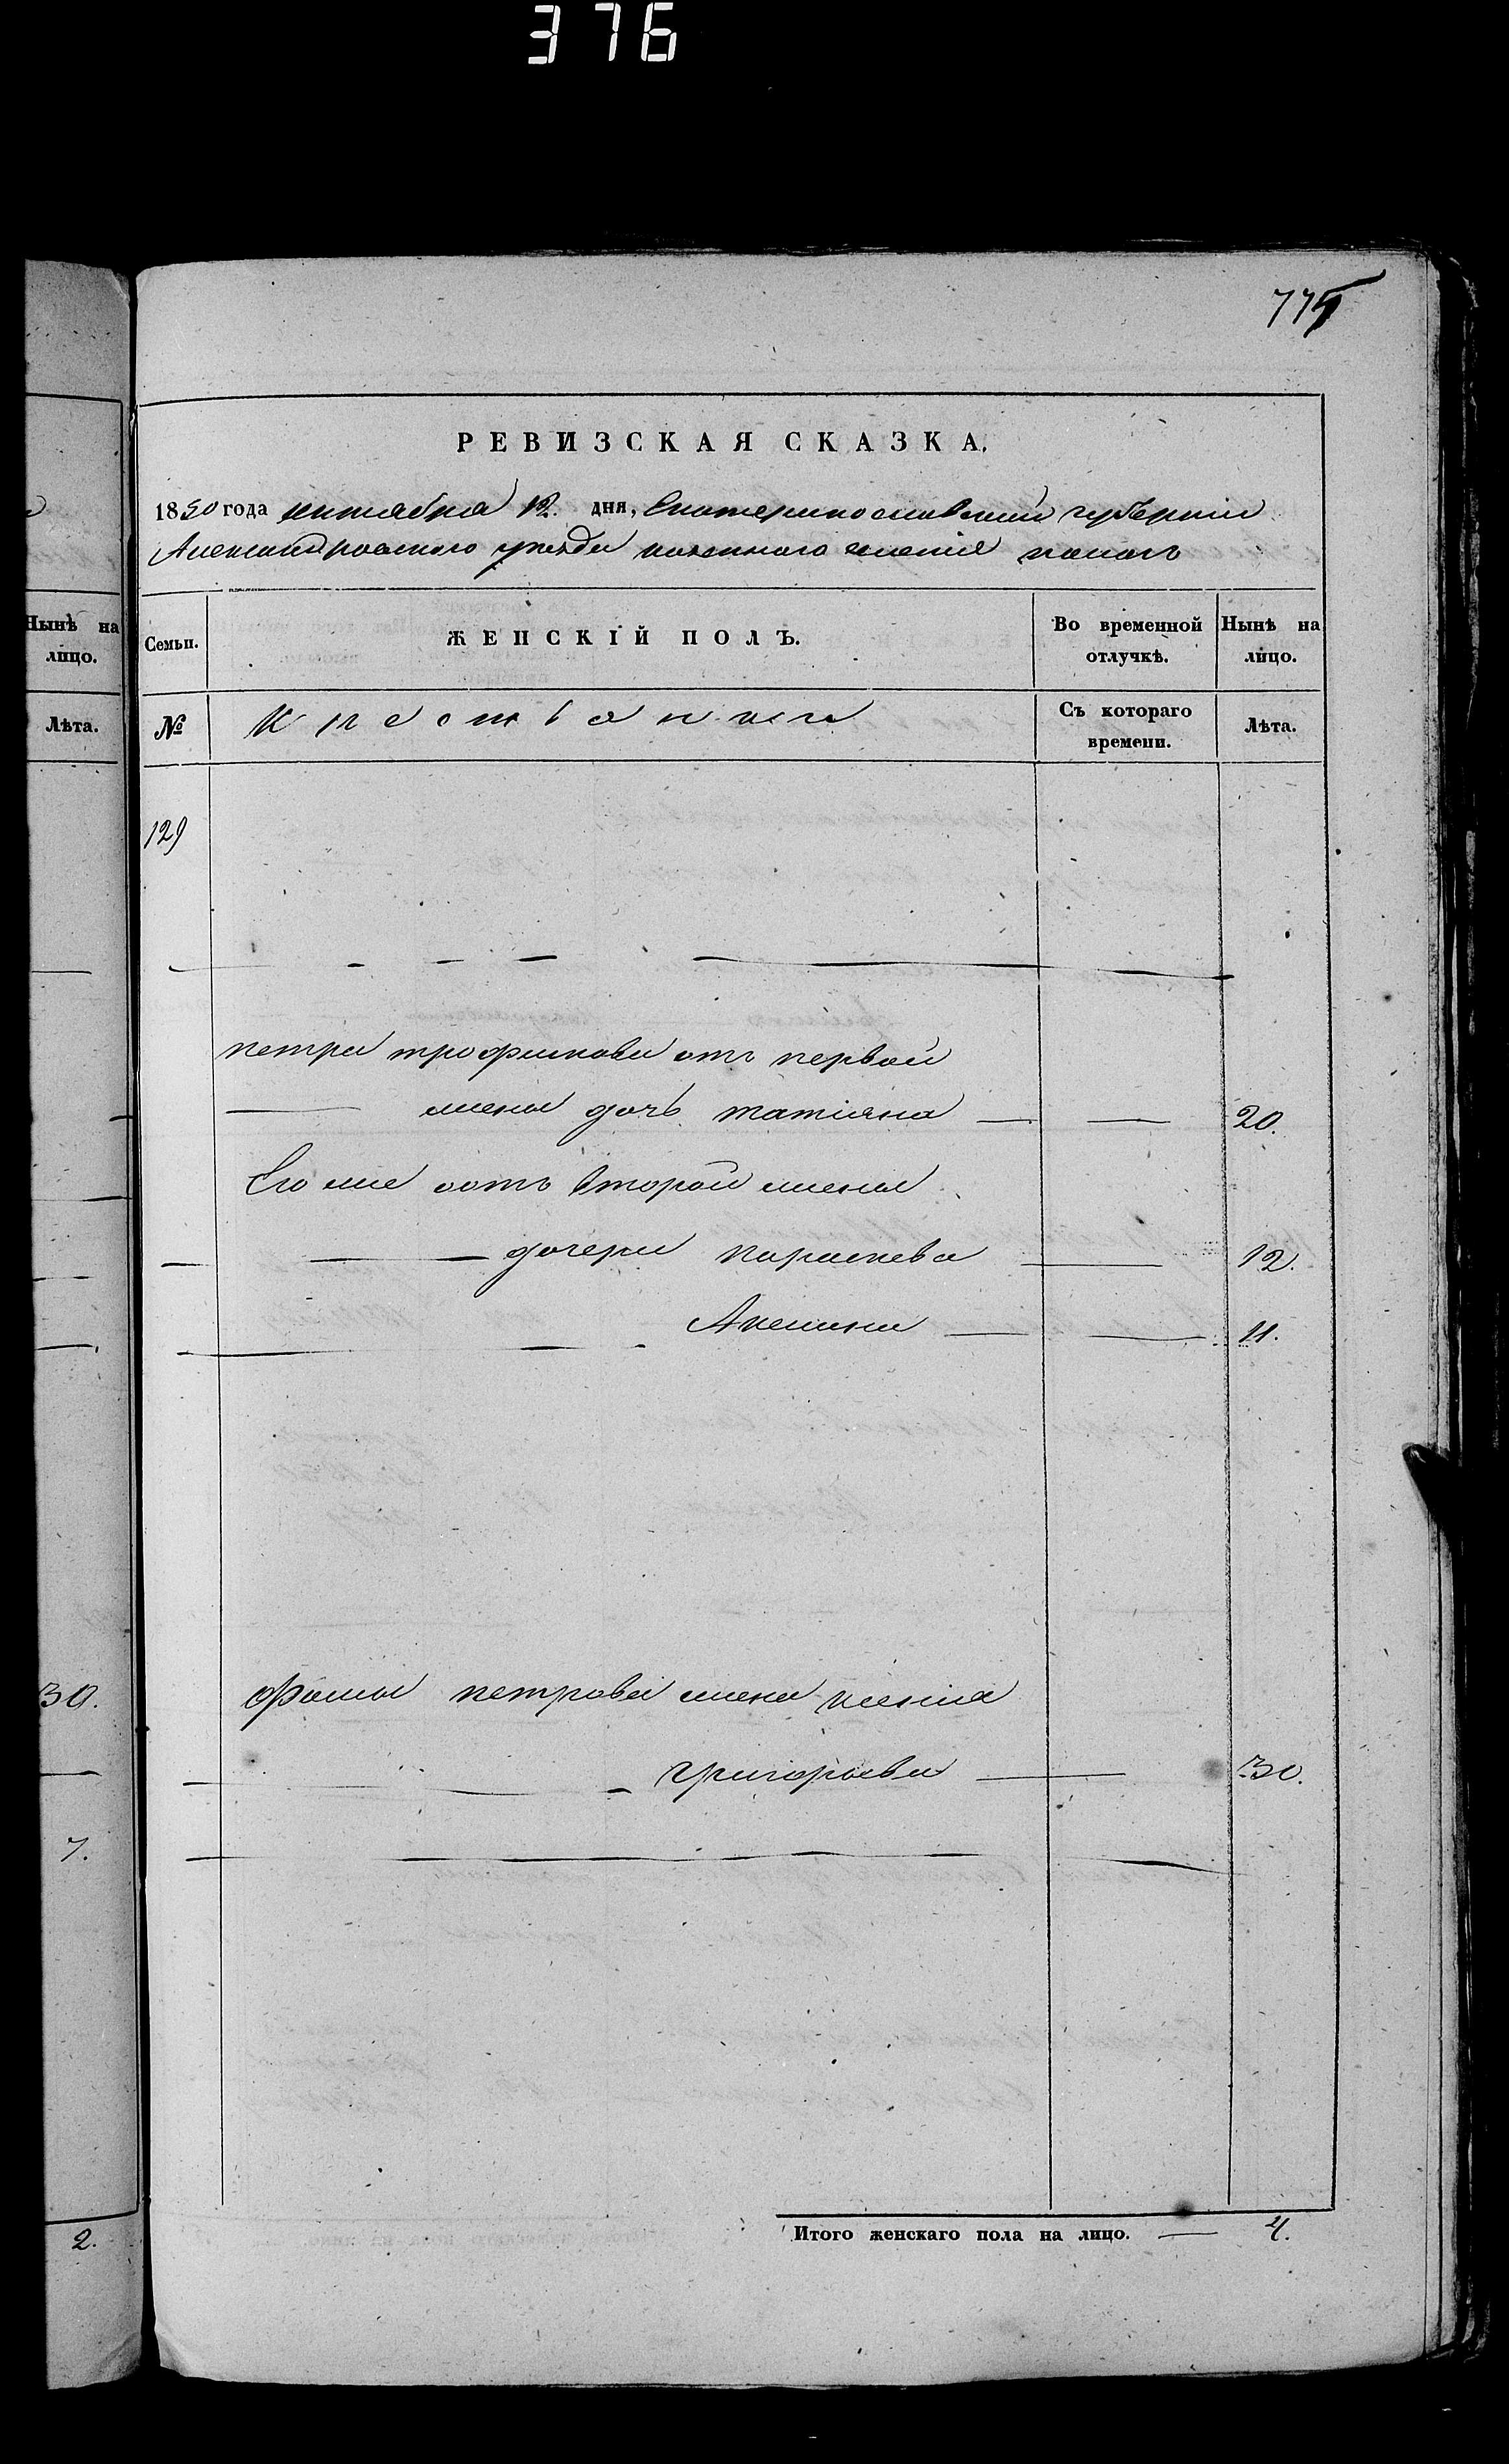 376
775
РЕВИЗСКАЯ СКАЗКА.
1850 года октября 12. дня, Екатеринославской губернии
Александровского уезда казенного имения
Нынѣ на лицо.
Лѣта.
30.
7.
2.
Семьи. ЖЕНСКІЙ ПОЛЪ. Во временной отлучкѣ. Нынѣ на лицо.
№ Крестьянки Съ котораго времени. Лѣта.
129
петра трофимова отъ первой
жены дочь татіяна 20.
Его же оотъ второй жены
дочери параскева 12.
Аксинья 11.
Фомы петрова жена ксенія
григорьева 30.
Итого женскаго пола на лицо. 4.